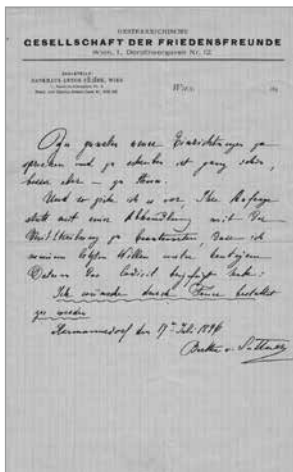 OESTERREICHISCHE
GESELLSCHAFT DER FRIEDENSFREUNDE
Wien, I., Dorotheergasse Nr. 12
WIEN
zu
sprechen und zu schreiben ist ganz schön,
besser aber — zu thun.
Und so ziehe ich es vor, Ihre Anfrage
statt mit einer Abhandlung mit der
zu beantworten, dass ich
meinem letzten Willen unter heutigem
Datum das Codicil beigefügt habe:
Ich wünsche durch Feuer bestattet
zu werden
Harmannsdorf den 17. Juli 1896
Bertha v. Suttner